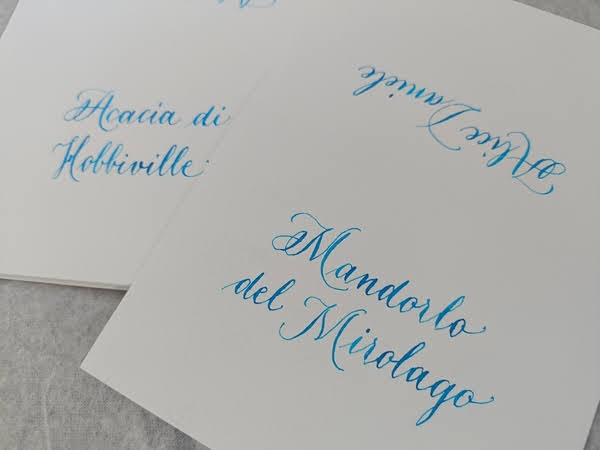 Acacia di
Hobbiville
Alice Daniele
Mandorlo
del Mirolago